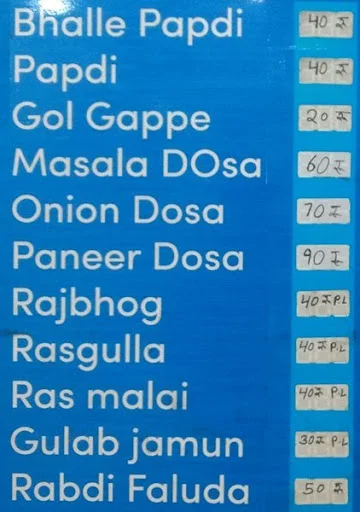 Bhalle Papdi 40 रु
Papdi 40 रु
Gol Gappe 20 रु
Masala DOsa 60 रु
Onion Dosa 70 रु
Paneer Dosa 90 रु
Rajbhog 40 रु P.L
Rasgulla 40 रु P.L
Ras malai 40 रु P.L
Gulab jamun 30 रु P.L
Rabdi Faluda 50 रु